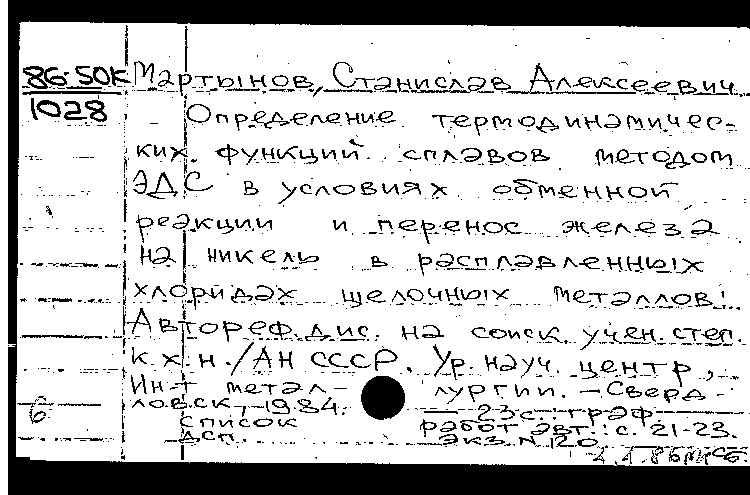 86-50К Мартынов, Станислав Алексеевич
1028
Определение термодинамичес-
ких функций сплавов методом
ЭДС в условиях обменной
реакции и перенос железа
на никель в расплавленных
хлоридах щелочных металлов:
Автореф. дис. на соиск. учен. степ.
к.х.н. / АН СССР. Ур. науч. центр,
Ин-т метал- лургии. - Сверд-
6 ловск, 1984. - 23с.: граф
список работ авт.: с. 21-23.
дсп. Экз. N 120